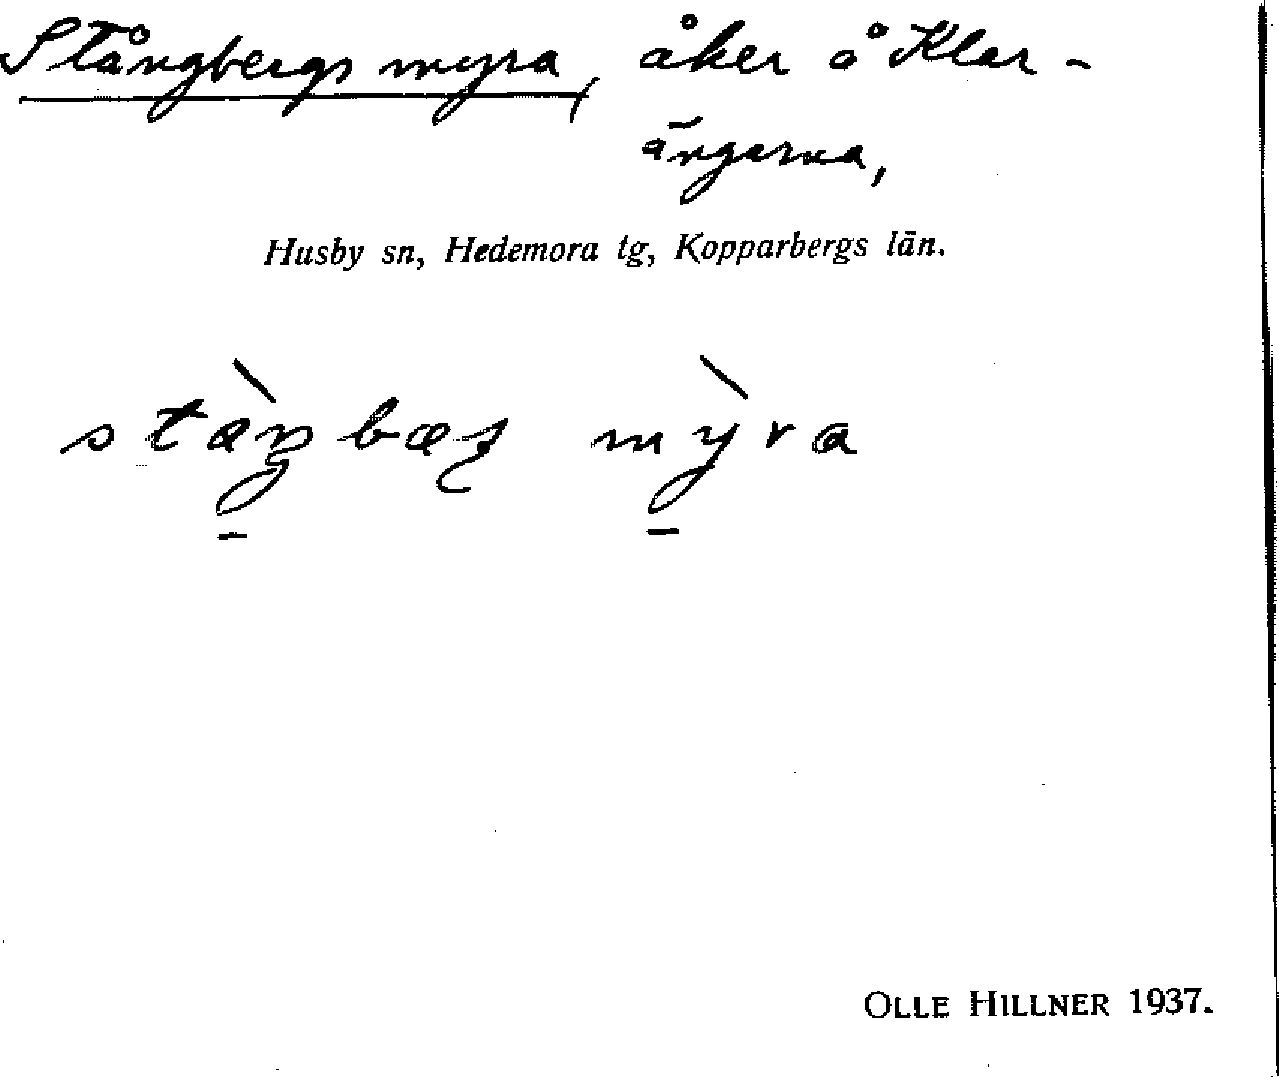 Stångbergsmyra, åker å Klar-
ängarna,
Husby sn, Hedemora tg, Kopparbergs län.
OLLE HILLNER 1937.